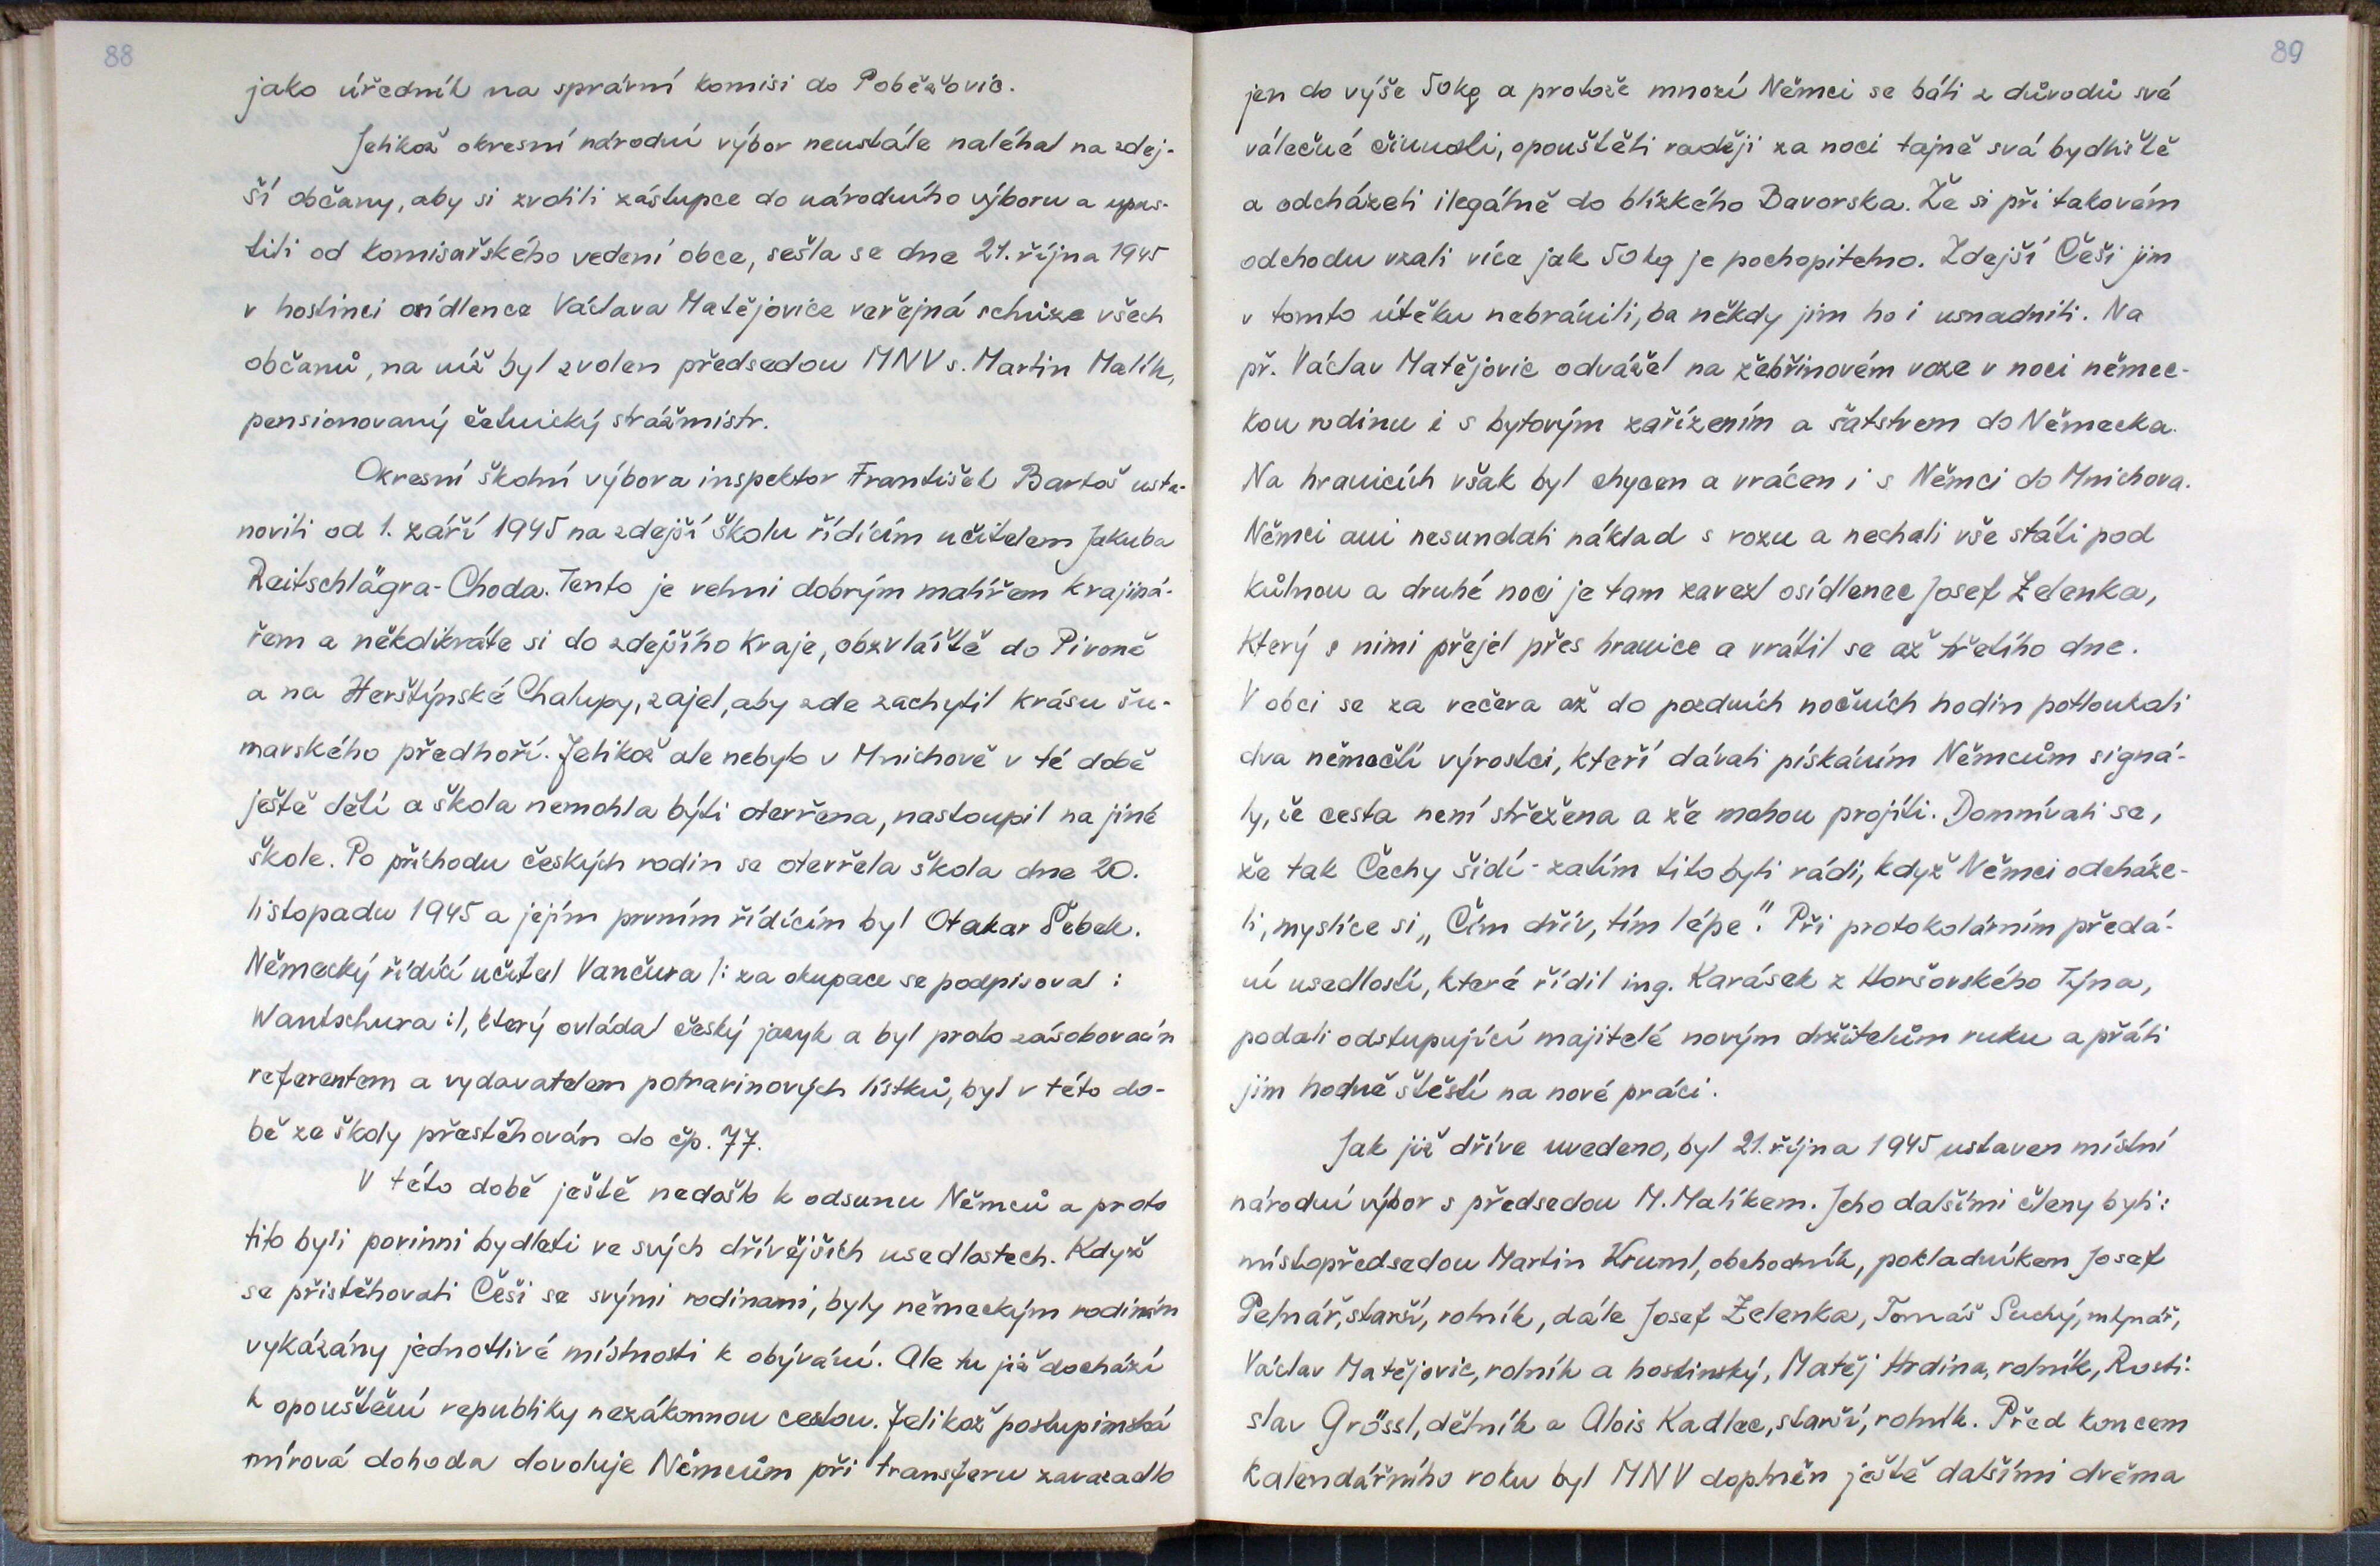 88
jako úředník na správní komisi do Poběžovic.
Jelikož okresní národní výbor neustále naléhal na zdej-
ší občany, aby si zvolili zástupce do národního výboru a upus-
tili od komisařského vedení obce, sešla se dne 21. října 1945
v hostinci osídlence Václava Matějovice veřejná schůze všech
občanů, na níž byl zvolen předsedou MNV s. Martin Malík,
pensionovaný četnický strážmistr.
Okresní školní výbor a inspektor František Bartoš usta-
novili od 1. září 1945 na zdejší školu řídícím učitelem Jakuba
Reitschlägra-Choda. Tento je velmi dobrým malířem krajiná-
řem a někdikráte si do zdejšího kraje, obzvláště do Pivoně
a na Herštýnské Chalupy, zajel, aby zde zachytil krásu šu-
mavského předhoří. Jelikož ale nebylo v Mnichově v té době
ještě dětí a škola nemohla býti otevřena, nastoupil na jiné
škole. Po příchodu českých rodin se otevřela škola dne 20.
listopadu 1945 a jejím prvním řídícím byl Otakar Šebek.
Německý řídící učitel Vančura /: za okupace se podpisoval :
Wantschura :/, který ovládal český jazyk a byl proto zásobovacím
referentem a vydavatelem potravinových lístků, byl v této do-
bě ze školy přestěhován do čp. 77.
V této době ještě nedošlo k odsunu Němců a proto
tito byli povinni bydleti ve svých dřívějších usedlostech. Když
se přistěhovali Češi se svými rodinami, byly německým rodinám
vykázány jednotlivé místnosti k obývání. Ale tu již dochází
k opouštění republiky nezákonnou cestou. Jelikož postupimská
mírová dohoda dovoluje Němcům při transferu zavazadlo
89
jen do výše 50kg a protože mnozí Němci se báli z důvodů své
válečné činnosti, opouštěli raději za noci tajně svá bydliště
a odcházeli ilegálně do blízkého Bavorska. Že si při takovém
odchodu vzali více jak 50kg je pochopitelno. Zdejší Češi jim
v tomto útěku nebránili, ba někdy jim ho i usnadnili. Na
př. Václav Matějovic odvážel na žebřinovém voze v noci němec-
kou rodinu i s bytovým zařízením a šatstvem do Německa.
Na hranicích však byl chycen a vrácen i s Němci do Mnichova.
Němci ani nesundali náklad s vozu a nechali vše státi pod
kůlnou a druhé noci je tam zavezl osídlenec Josef Zelenka,
který s nimi přejel přes hranice a vrátil se až třetího dne.
V obci se za večera až do pozdních nočních hodin potloukali
dva němečtí výrostci, kteří dávali pískáním Němcům signá-
ly, že cesta není střežena a že mohou projíti. Domnívali se,
že tak Čechy šidí - zatím tito byli rádi, když Němci odcháze-
li, myslíce si „Čím dřív, tím lépe." Při protokolárním předá-
ní usedlostí, které řídil ing. Karásek z Horšovského Týna,
podali odstupující majitelé novým držitelům ruku a přáli
jim hodně štěstí na nové práci.
Jak již dříve uvedeno, byl 21. října 1945 ustaven místní
národní výbor s předsedou M. Malíkem. Jeho dalšími členy byli:
místopředsedou Martin Kruml, obchodník, pokladníkem Josef
Pelnář, starší, rolník, dále Josef Zelenka, Tomáš Suchý, mlynář,
Václav Matějovic, rolník a hostinský, Matěj Hrdina, rolník, Rosti-
slav Grössl, dělník a Alois Kadlec, starší, rolník. Před koncem
kalendářního roku byl MNV doplněn ještě dalšími dvěma